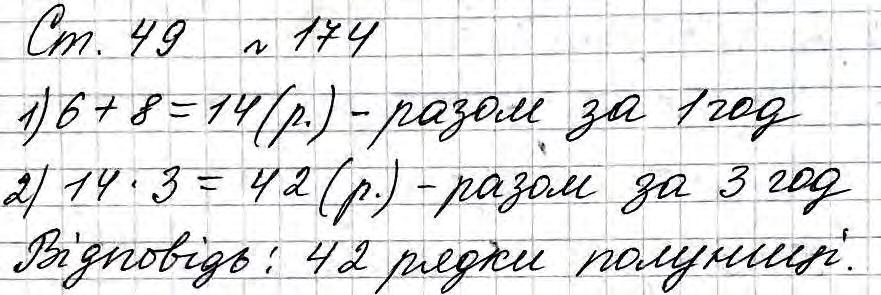 Ст. 49 № 174
1) 6 + 8 = 14 (р.) - разом за 1 год
2) 14 · 3 = 42 (р.) - разом за 3 год
Відповідь: 42 рядки полуниці.